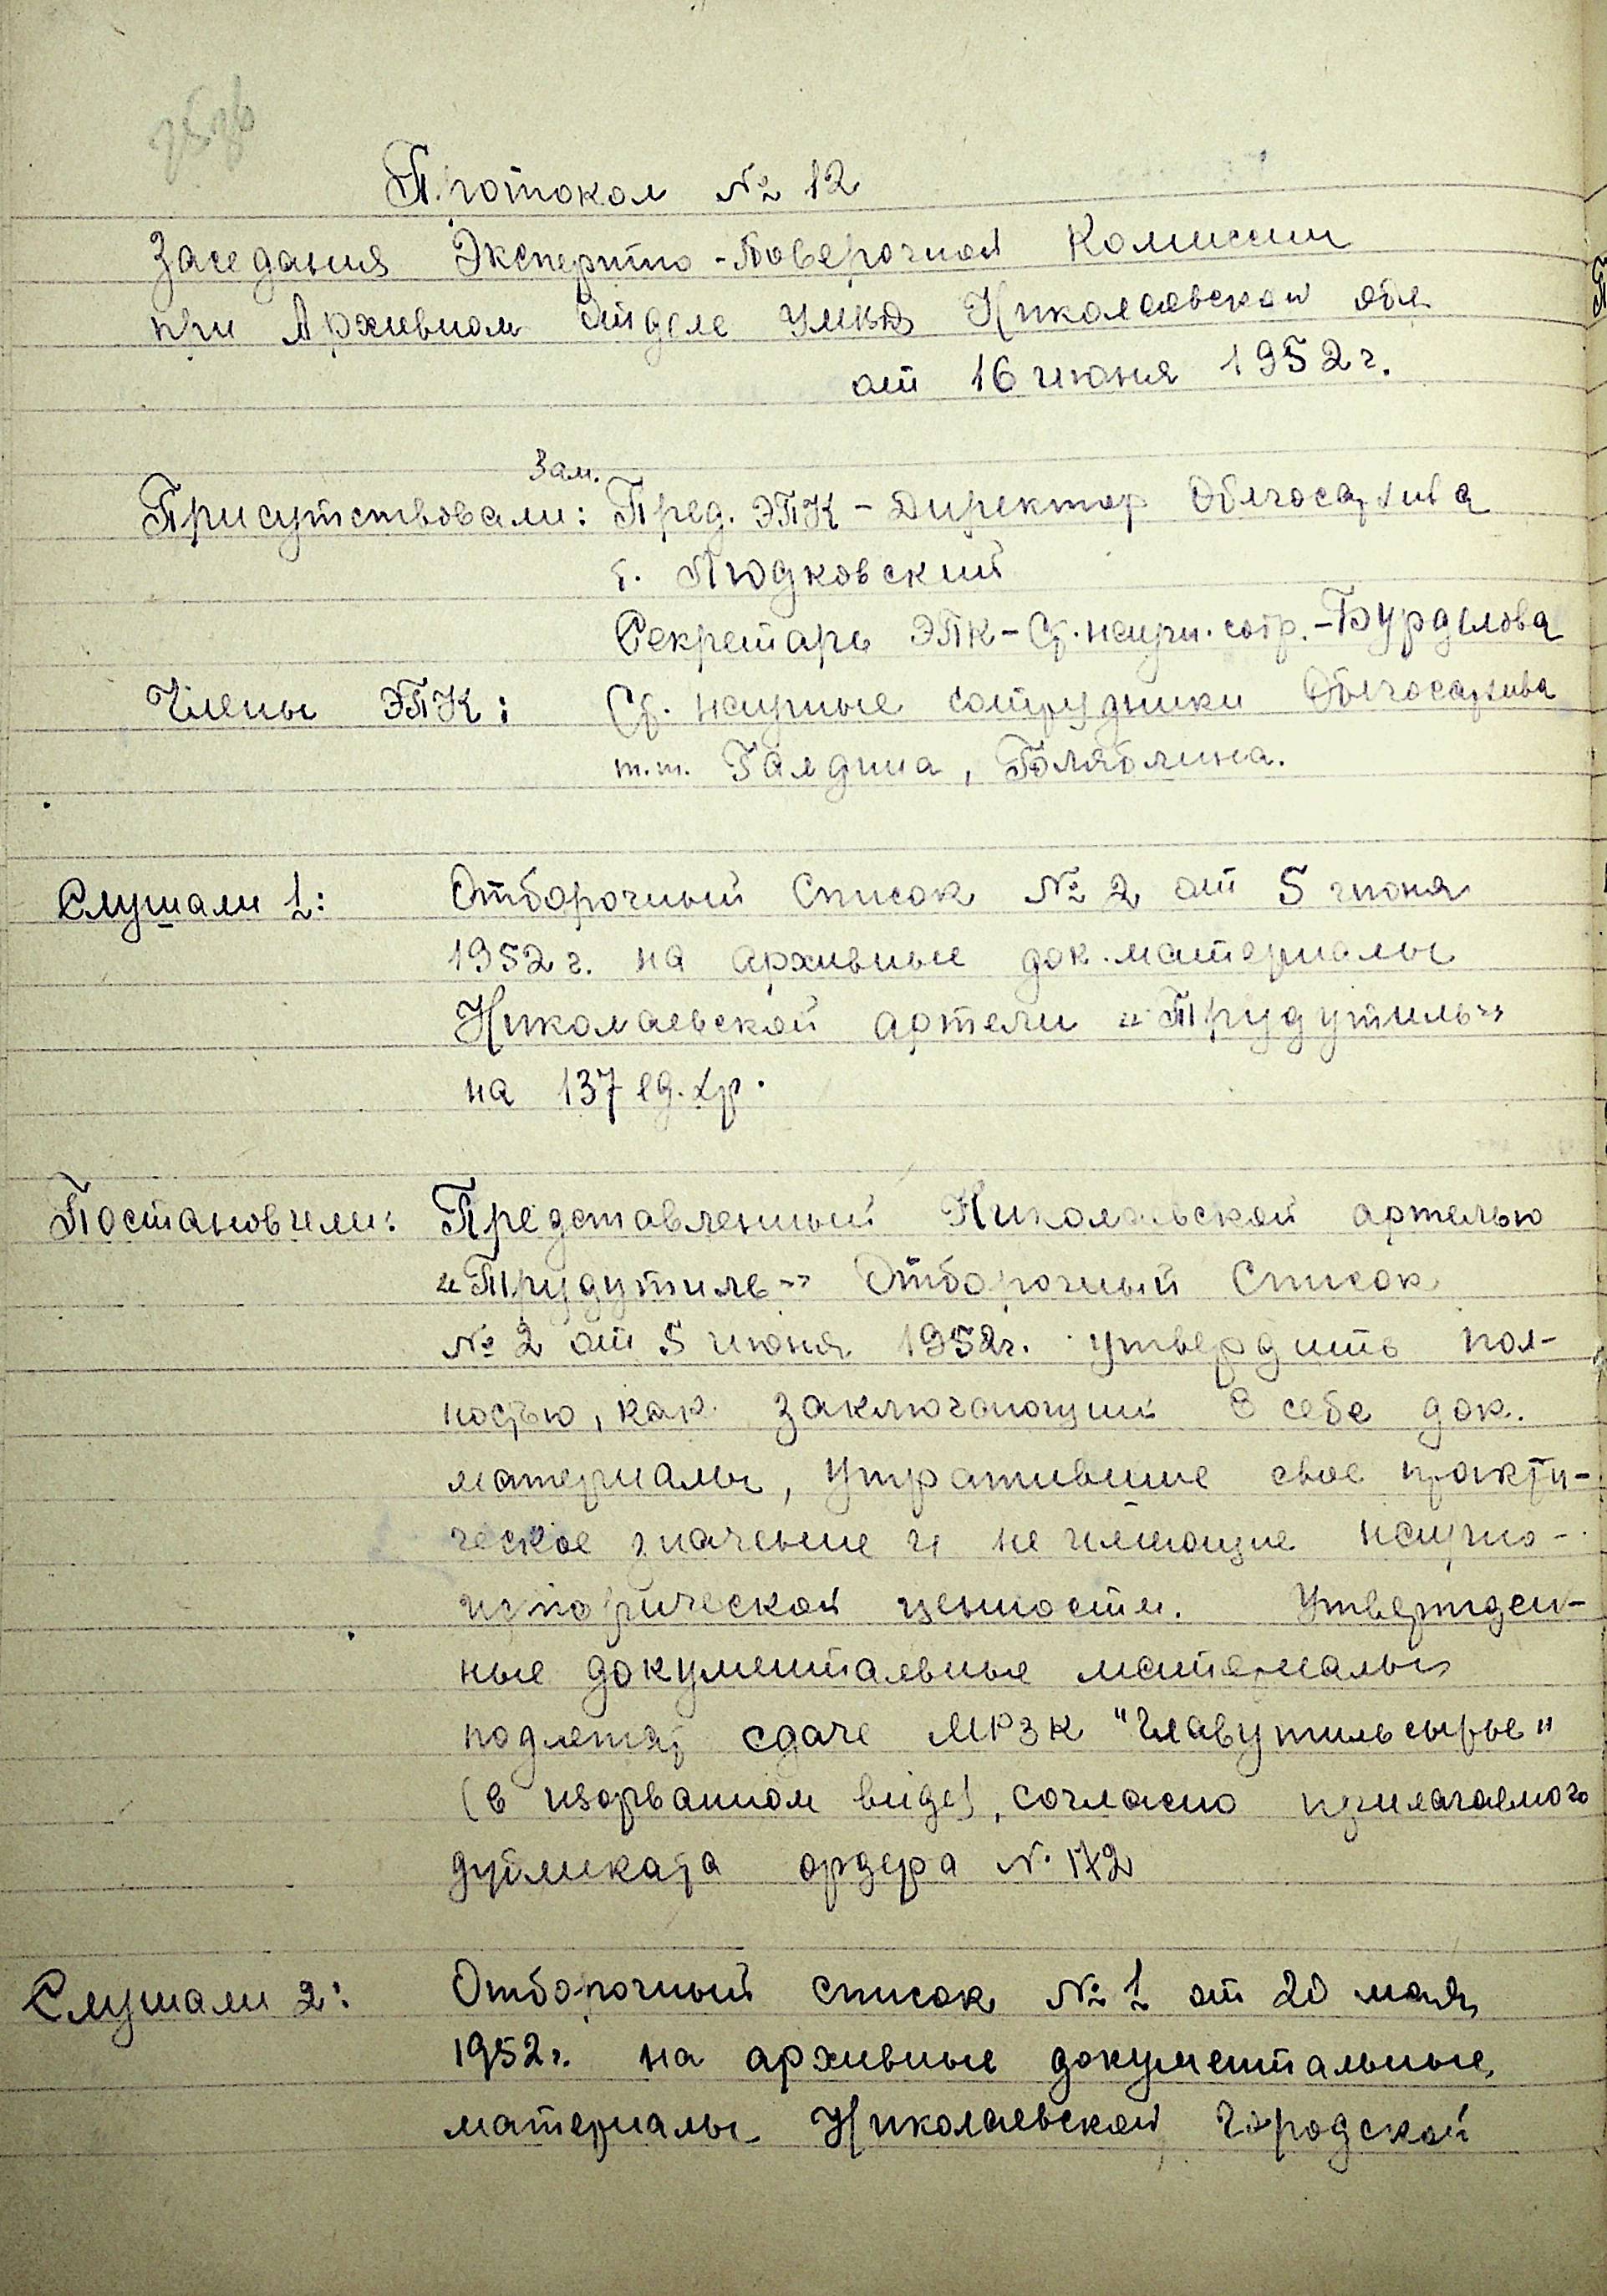 Протокол № 12
Заседания Экспертно-Поверочной Комиссии
при Архивном отделе УМВД Николаевской обл.
от 16 июня 1952 г.
Зам.
Присутствовали: Пред. ЭПК - Директор Облгосархива
т. Людковский
Секретарь ЭПК - Ст. научн. сотр. - Бурдылова
Члены ЭПК: Ст. научные сотрудники Облгосархива
т.т. Галдина,
Слушали 1: Отборочный Список № 2 от 5 июня
1952 г. на архивные док. материалы
Николаевской артели «Трудутиль»
на 137 ед. хр.
Постановили: Представленный Николаевской артелью
«Трудутиль» Отборочный Список
№ 2 от 5 июня 1952 г. утвердить пол-
ностью, как заключающий в себе док.
материалы, утратившие свое практи-
ческое значение и не имеющие научно-
исторической ценности. Утвержден-
ные документальные материалы
подлежат сдаче МРЗК "Главутильсырье"
(в изорванном виде), согласно прилагаемого
дубликата ордера № 172
Слушали 2: Отборочный список № 1 от 20 мая
1952 г. на архивные документальные
материалы Николаевской Городской